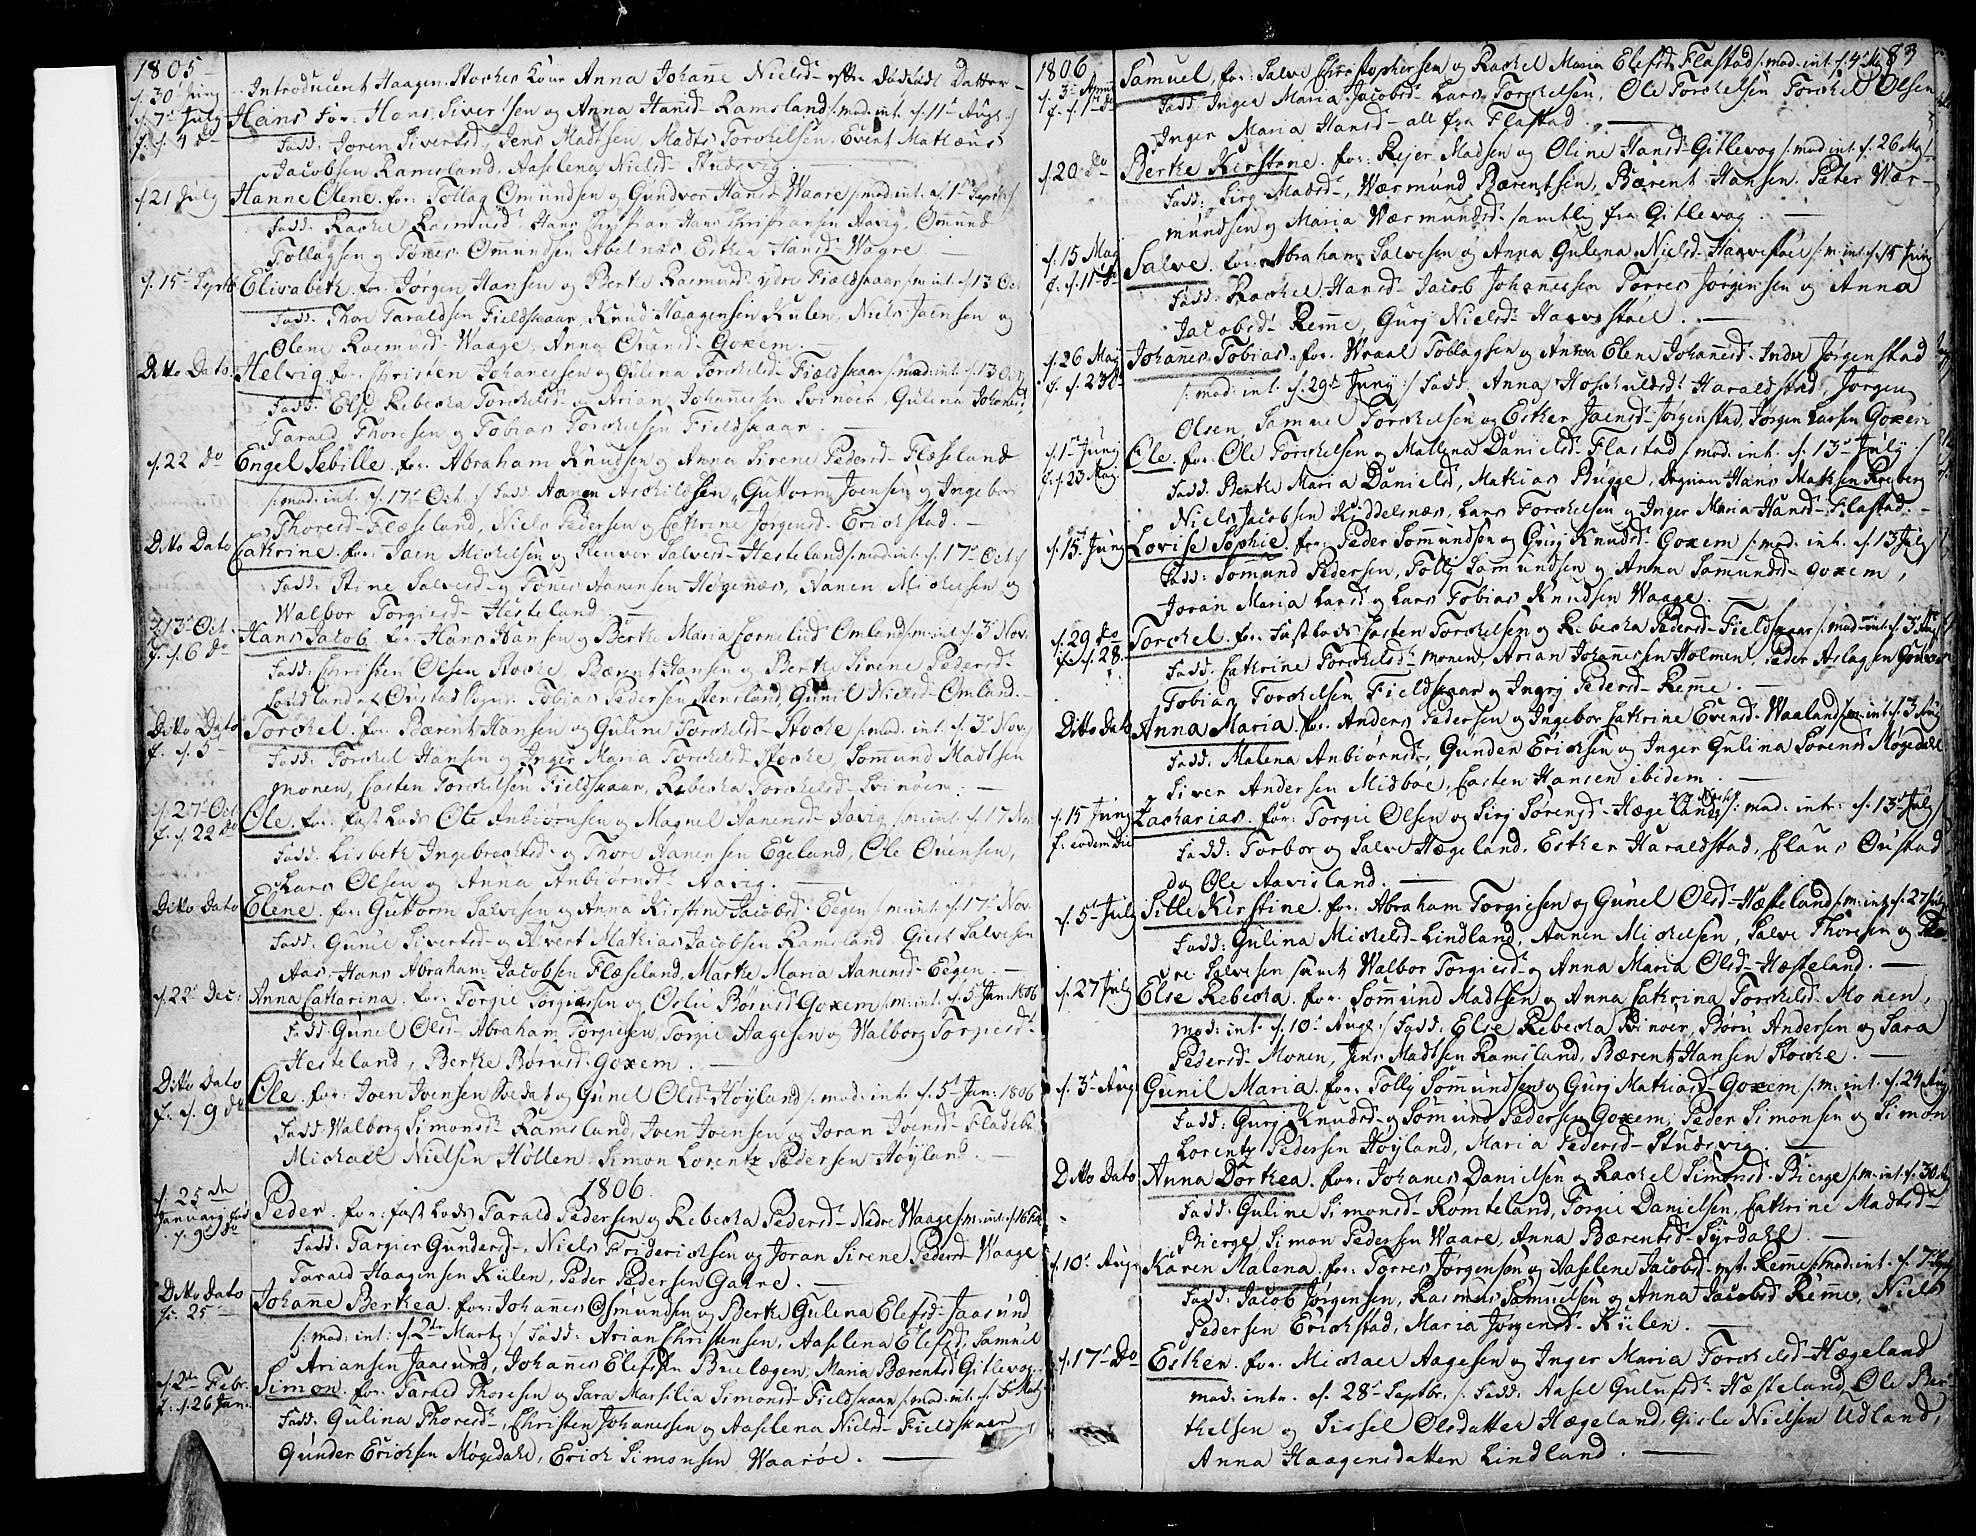 1805
d. 30 Juny Introducert Haagen Stockes Kone Anna Johanne Nielsd- efter dödfödt Datter-
d. 7de July Hans for: Hans Siversen og Anna Hansd- Ramsland /: mad. int. d. 11te Aug: :/
f. d. 4 do Fadd: Joren Sivertsd, Jens Madtsen, Madts Torckelsen, Event Mathæus
Jacobsen Ramsland, Aaselena Nielsd- Studsvig
d. 21 July Hanne Elene. for: Tollag Omundsen og Gundvor Hansd- Waare /: mad. int. d. 1te Septbr :/
Fadd: Rachel Rasmusd, Hans Christiansen Aavig, Omund
Tollagsen og Tönes Omundsen Abelnæs Esther Hansd- Wagre
d. 15 Septb Elisabeth. for: Jørgen Hansen og Berthe Rasmusd- ydre Fieldskaar /: m: int. d. 13 Oct
Fadd: Thore Taraldsen Fieldskaar, Knud Haagensen Kulen, Niels Jaensen og
Olene Rasmusd- Waage, Anna Goxem.
Ditto Dato Helvig for: Christen Johannesen og Gulena Torckelsd- Fieldskaar /: mad: int: d. 13 Oct
Fadd: Else Rebecka Torckelsd- og Arian Johannesen Svinöer, Gulena Johansd
Tarald Thoresen og Tobias Torckelsen Fieldskaar
d. 22 do Engel Sebille. for: Abraham Knudsen og Anna Sirene Pedersd- Fleseland
/: mad: int. d. 17 Oct. :/ Fadd: Aanen Aschildsen, Guttorm Joensen og Ingebor
Thoresd- Fleseland, Niels Pedersen og Cathrine Jorgensd- Erickstad.
Ditto Dato Cathrine. for: Jaen Mickelsen og Kenver Salvesd- Hesteland /: mad. int. d. 17 Oct :/
Fadd: Stine Salvesd- og Tönnes Aanensen Högenæs, Aanen Mickelsen og
Walbor Torgiersd- Hesteland
d. 13 Oct. Hans Jacob for: Hans Hansen og Berthe Maria Corneliusd Omland /: m: int d. 3 Nov:
f. d. 6 do Fadd: Christen Olsen Stocke, Bærent Hansen og Berthe Sirene Pedersd-
Sandland af Öustad Sogn: Tobias Pedersen Stensland, Gunil Nielsd- Omland.
Ditto Dato Torckel for: Bærent Hansen og Guline Torckelsd- Stocke /: mad. int. d. 3 Nov:/
f. d. 5 Fadd: Torckel Hansen og Inger Maria Torckelsd Stocke, Sommund Madtsen
Monen, Casten Torckelsen Fieldskaar, Rebecka Torckelsd- Svinöer.
d. 27 Oct Ole. for: fast Lods Ole Anbiörnsen og Magnel Aanensd- Aavig /: m: int. d. 17 Nov
f. d. 22 do Fadd: Lisbeth Ingebrechtsd- og Thore Aanensen Egeland, Ole Öuensen,
Lars Olsen og Anna Anbiörnsd- Aavig.
Ditto Dato Elene. for: Guttorm Salvesen og Anna Kirstine Jacobsd- Eegen /: m: int. d. 17 Nov.
Fadd: Gunil Sivertsd- og Alvert Mathias Jacobsen Ramsland, Giert Salvesen
Aas- Hans Abraham Jacobsen Flæseland, Marthe Maria Aanensd- Eegen.
d. 22 Dec: Anna Catharina. for: Torgie Torgiersen og Oslu Börusd Goxem /: m: int. d. 5 Jan. 1806
Fadd Gunel Olsd- Abraham Torgiesen, Torgie Aagesen og Walborg Torgiersd-
Hesteland, Berthe Börusd- Goxem.
Ditto Dato Ole. for: Joen Joensen Svedat og Gunel Olsd- Höyland /: mad. int. d. 5 Jan: 1806
f. d. 9 do Fadd: Walborg Simonsd: Ramsland, Joen Joensen og Joran Joensd- Fladebæ
Michael Nielsen Höllen, Simon Lorentz Pedersen Höyland.
1806.
d. 25de Januarij Peder. for: fast Lods Tarald Pedersen og Rebecka Pedersd- Nedre Waage /: m: int: d. 16 Feb
Fadd: Targier Gundersd-, Niels Friderichsen og Joran Sirene Pedersd Waage
Tarald Haagensen Kulen, Peder Pedersen Gahre.
Ditto Dato Johanne Berthea. for: Johannes Osmundsen og Berthe Gulena Elefsd- Jaasund
f: 25 /: mad: int: d. 2de Marty :/ Fadd: Arian Christensen, Aaselena Elefsd, Samuel
Ariansen Jaasund, Johannes Elefsen Buelægen, Maria Bærentsd Gitlevag.
d. 2de Febr. Simon. for: Tarald Thoresen og Sara Marsilia Simonsd- Fieldskaar /: mad. int.
f: d. 26 Jan: Fadd: Gulina Thoresd- Christen Johannesen og Aaselena Nielsd- Fieldskaar
Gunder Ericksen Møgedahl, Erick Simonsen Waaröe.
1806 83
d. 3 April Samuel, for: Salve Christophersen og Rachel Maria Elefsd Flastad /: mad. int. d. 4
f. d. 1 do Fadd: Inger Maria Jacobsd- Lars Torckelsen, Ole Torckelsen Torckel Olsen
Inger Maria Hansd- all fra Flastad.
d. 20 do Berthe Kirstine. for: Rejer Madsen og Oline Hansd- Gitlevog /: mad int. d. 26 May
Fadd: Sirg Madsd-, Wærmund Bærentsen, Bærent Hansen Peter Wær-
mundsen og Maria Wærmundsd- samtlig fra Gitlevog.
d. 15 May Salve. for: Abraham Salvesen og Anna Gulena Nielsd- Haavestöel /: m: int: d. 15 Juny
f. d. 11 do Fadd: Rachel Hansd- Jacob Johannesen Torres Jørgensen og Anna
Jacobsd- Remme, Gurj Nielsd- Haavestöel.
d. 26 May Johannes Tobias. for: Wraal Tollagsen og Anna Elene Johannesd- Indre Jørgenstad
f. d. 23 do /: mad: int. d. 29 Juny :/ Fadd: Anna Hosckuldsd Haraldstad, Jorgen
Olsen, Samuel Torckelsen og Esther Joensd- Jørgenstad, Jørgen Larsen Goxem
d. 1te Juny Ole. for: Ole Torckelsen og Mallena Danielsd- Flastad /: mad: int. d. 13 July :/
f. d. 23 Maj Fadd: Berthe Maria Danielsd, Mathias Bugge, Dragoun Hans Mathsen Rosberg
Niels Jacobsen Kiddelsnæs, Lars Torckelsen og Inger Maria Hansd- Flastad.
d. 15 Juny Lovise Sophie. for: Peder Sommundsen og Gurj Knudsd- Goxem /: mad: int. d. 13 July
Fadd: Sommund Pedersen, Tollj Samundsen og Anna Samundsd- Goxem,
Joran Maria Larsd og Lars Tobias Knudsen Waage.
d. 29 do Torckel. for: Fastlods Casten Torckelsen og Rebecka Pedersd- Fieldskaar /: mad. int. d. 3 Aug
f. d. 28. Fadd: Cathrine Torckelsd- Monen, Arian Johannesen Holmen, Peder Aslagsen
Tobias Torckelsen Fieldskaar og Ingrj Pedersd- Remme.
Ditto Dato Anna Maria. for: Anders Pedersen og Ingebor Cathrine Evensd- Waaland /: m: int d. 3 Aug
Fadd: Malena Anbiörnsd-, Gunder Ericksen og Inger Gulina Sörensd Møgedahl
Siver Andersen Midböe, Casten Hansen ibidem.
d. 15 Juny Zacharias. for: Torgie Olsen og Sirj Sørensd- Hægeland /: mad: int: d. 13 July /
f. eodem die Fadd: Torbor og Salve Hægeland, Esther Haraldstad, Claus Öustad
og Ole Aavisland.
d. 5 July Sille Kirstine. for: Abraham Torgiesen og Gunel Olsd- Hæsteland /: m: int: d. 27 July
Fadd: Gulina Mickelsd- Lindland, Aanen Mickelsen, Salve Thoresen og Tho-
re Salvesen samt Walbor Torgiersd- og Anna Maria Olsd- Hæsteland.
d. 27 July Else Rebecka. for: Sommund Madtsen og Anna Cathrina Torckelsd- Monen,
mad: int d. 10 Augt. :/ Fadd: Else Rebecka Svinöer, Böru Andersen og Sara
Pedersd- Monen, Jens Madtsen Ramsland, Bærent Hansen Stocke.
d. 3 Aug: Gunil Maria. for: Tollj Sommundsen og Gurj Mathiasd- Goxem /: m: int. d. 24 Aug
Fadd: Gurj Knudsd- og Somund Pedersen Goxem, Peder Simonsen og Simon
Lorentz Pedersen Höyland, Maria Pedersd- Studsvig.
Ditto Dato Anna Dorthea. for: Johannes Danielsen og Rachel Simonsd- Bierge /: m: int d. 30 Aug
Fadd: Guline Simonsd- Römteland, Torgie Danielsen, Cathrine Madtsd-
Bierge, Simon Pedersen Waare, Anna Bærentsd- Syrdahl.
d. 10 Aug: Karen Malena. for: Torres Jörgensen og Aaselene Jacobsd- Remme /: mad: int. d. 7 Sept
Fadd: Jacob Jørgensen, Rasmus Samuelsen og Anna Jacobsd Remme, Niels
Pedersen Erickstad, Maria Jørgensd- Kulen.
d. 17 do Esther. for: Michael Aagesen og Inger Maria Torckelsd- Hægeland
mad: intr. d. 28 Septbr. :/ Fadd: Aasel Gulufsd: Hæsteland, Ole Ber-
thelsen og Sissel Olsdatter Hægeland, Gisle Nielsen Udland,
Anna Haagensdatter Lindland.